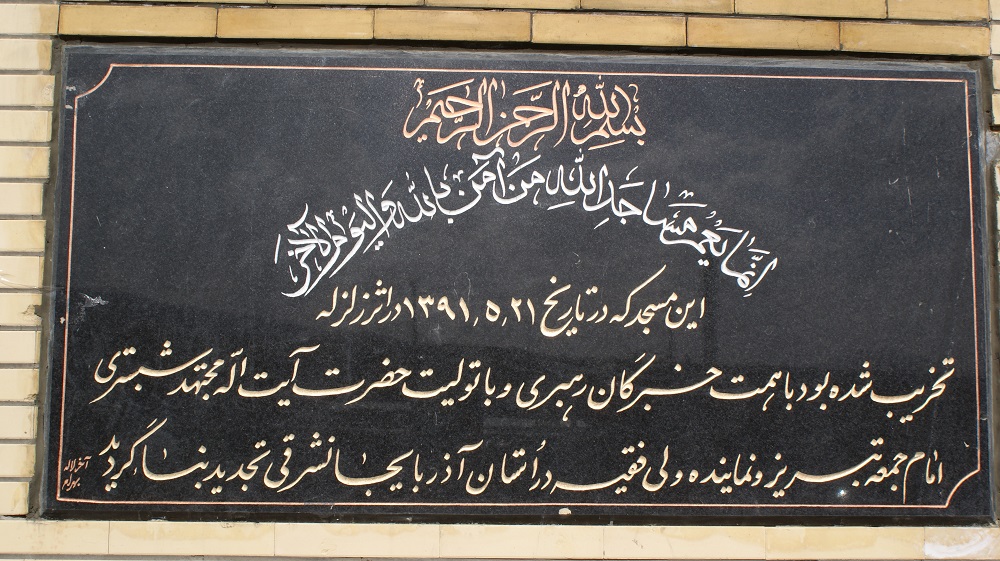 بسم الله الرحمن الرحیم
اِنَّمٰا یَعْمُرُ مَسٰاجِدَ اللهِ مَنْ آمَنَ بِاللهِ وَالیَومِ الآخَر
این مسجد که در تاریخ ۱۳۹۱٫۵٫۲۱ در اثر زلزله
تخریب شده بود با همت خبرگان رهبری و با تولیت حضرت آیت اله مجتهد شبستری
امام جمعه تبریز و نماینده ولی فقیه در اُستان آذربایجانشرقی تجدید بنا گردید